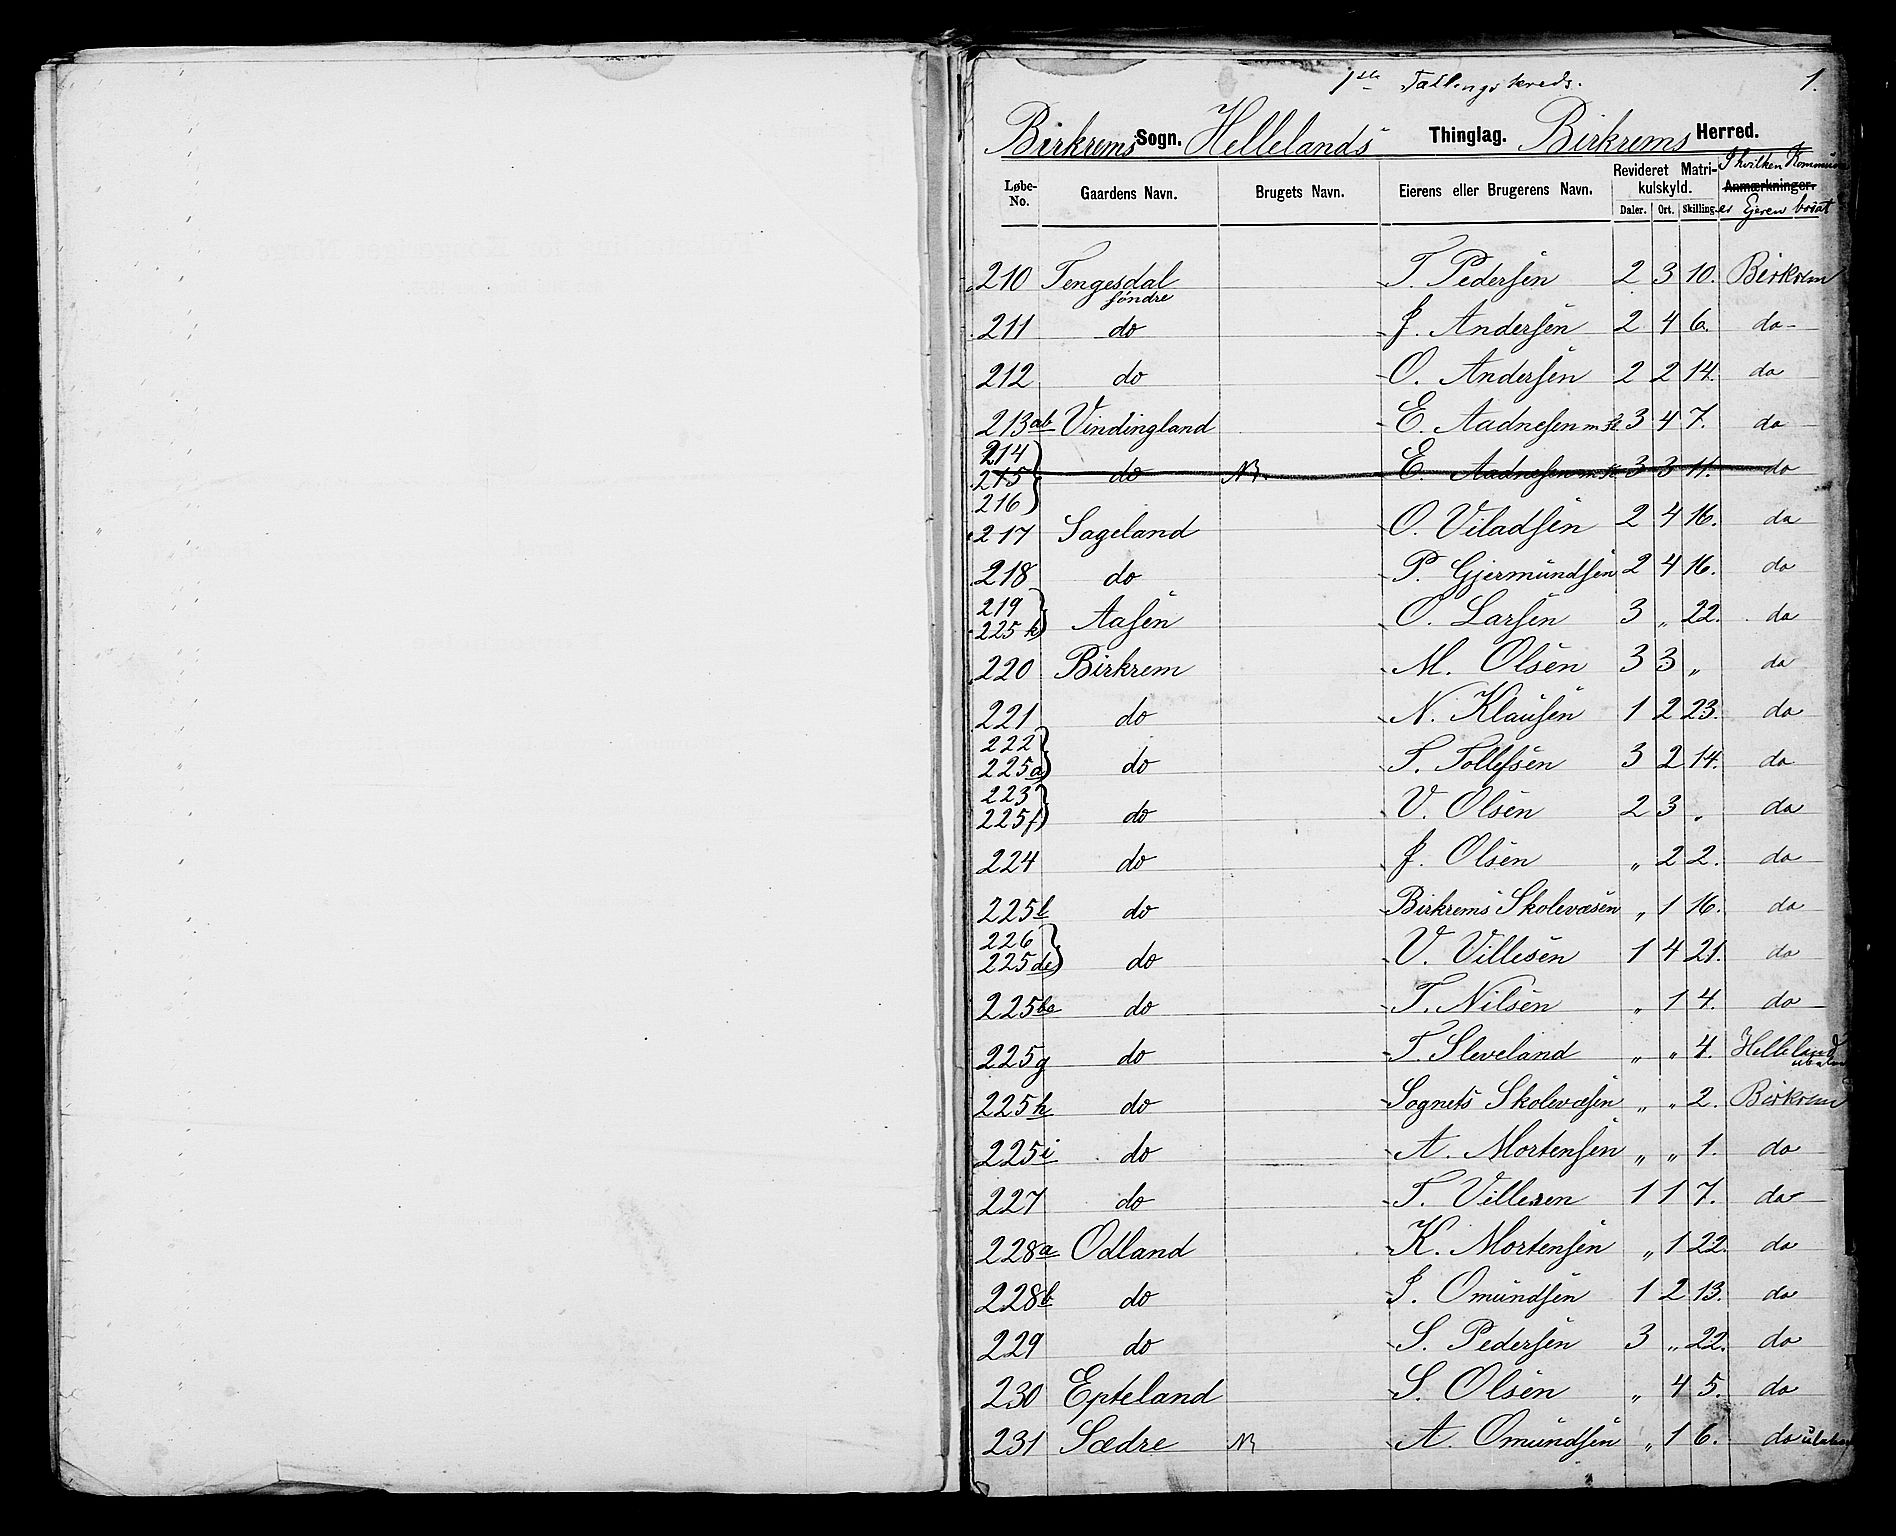 1ste Tællingskreds. 1.
Birkrems Sogn. Hellelands Thinglag. Birkrems Herred.
Løbe-No. Gaardens Navn. Brugets Navn. Eierens eller Brugerens Navn. Revideret Matrikulskyld. Daler. Ort. Skilling. Anmærkninger. I hvilken Kommune er Ejeren bosat
210 Tengesdal søndre T. Pedersen 2 3 10. Birkrem
211 do J. Andersen 2 4 6. do
212 do O. Andersen 2 2 14. do
213ab Vindingland E. Aadnesen m. fl. 3 4 7. do
214 215 216 do E. Aadnesen m. fl. 3 3 11. do
217 Sageland O. Viladsen 2 4 16. do
218 do P. Gjermundsen 2 4 16. do
219 225k Aasen O. Larsen 3 „ 22. do
220 Birkrem M. Olsen 3 3 „ do
221 do N. Klausen 1 2 23. do
222 225a do S. Tollefsen 3 2 14. do
223 225f do V. Olsen 2 3 „ do
224 do J. Olsen „ 2 2. do
225l do Birkrems Skolevæsen „ 1 16. do
226 225de do V. Villesen 1 4 21. do
225bc do T. Nilsen „ 1 4. do
225g do T. Sleveland „ „ 4. Helleland
225h do Sognets Skolevæsen „ „ 2. Birkrem
225i do A. Mortensen „ „ 1. do
227 do T. Villesen 1 1 7. do
228a Odland K. Mortensen „ 1 22. do
228b do J. Omundsen 1 2 13. do
229 do S. Pedersen 3 „ 22. do
230 Epteland S. Olsen „ 4 5. do
231 Sædre A. Omundsen „ 1 6. do